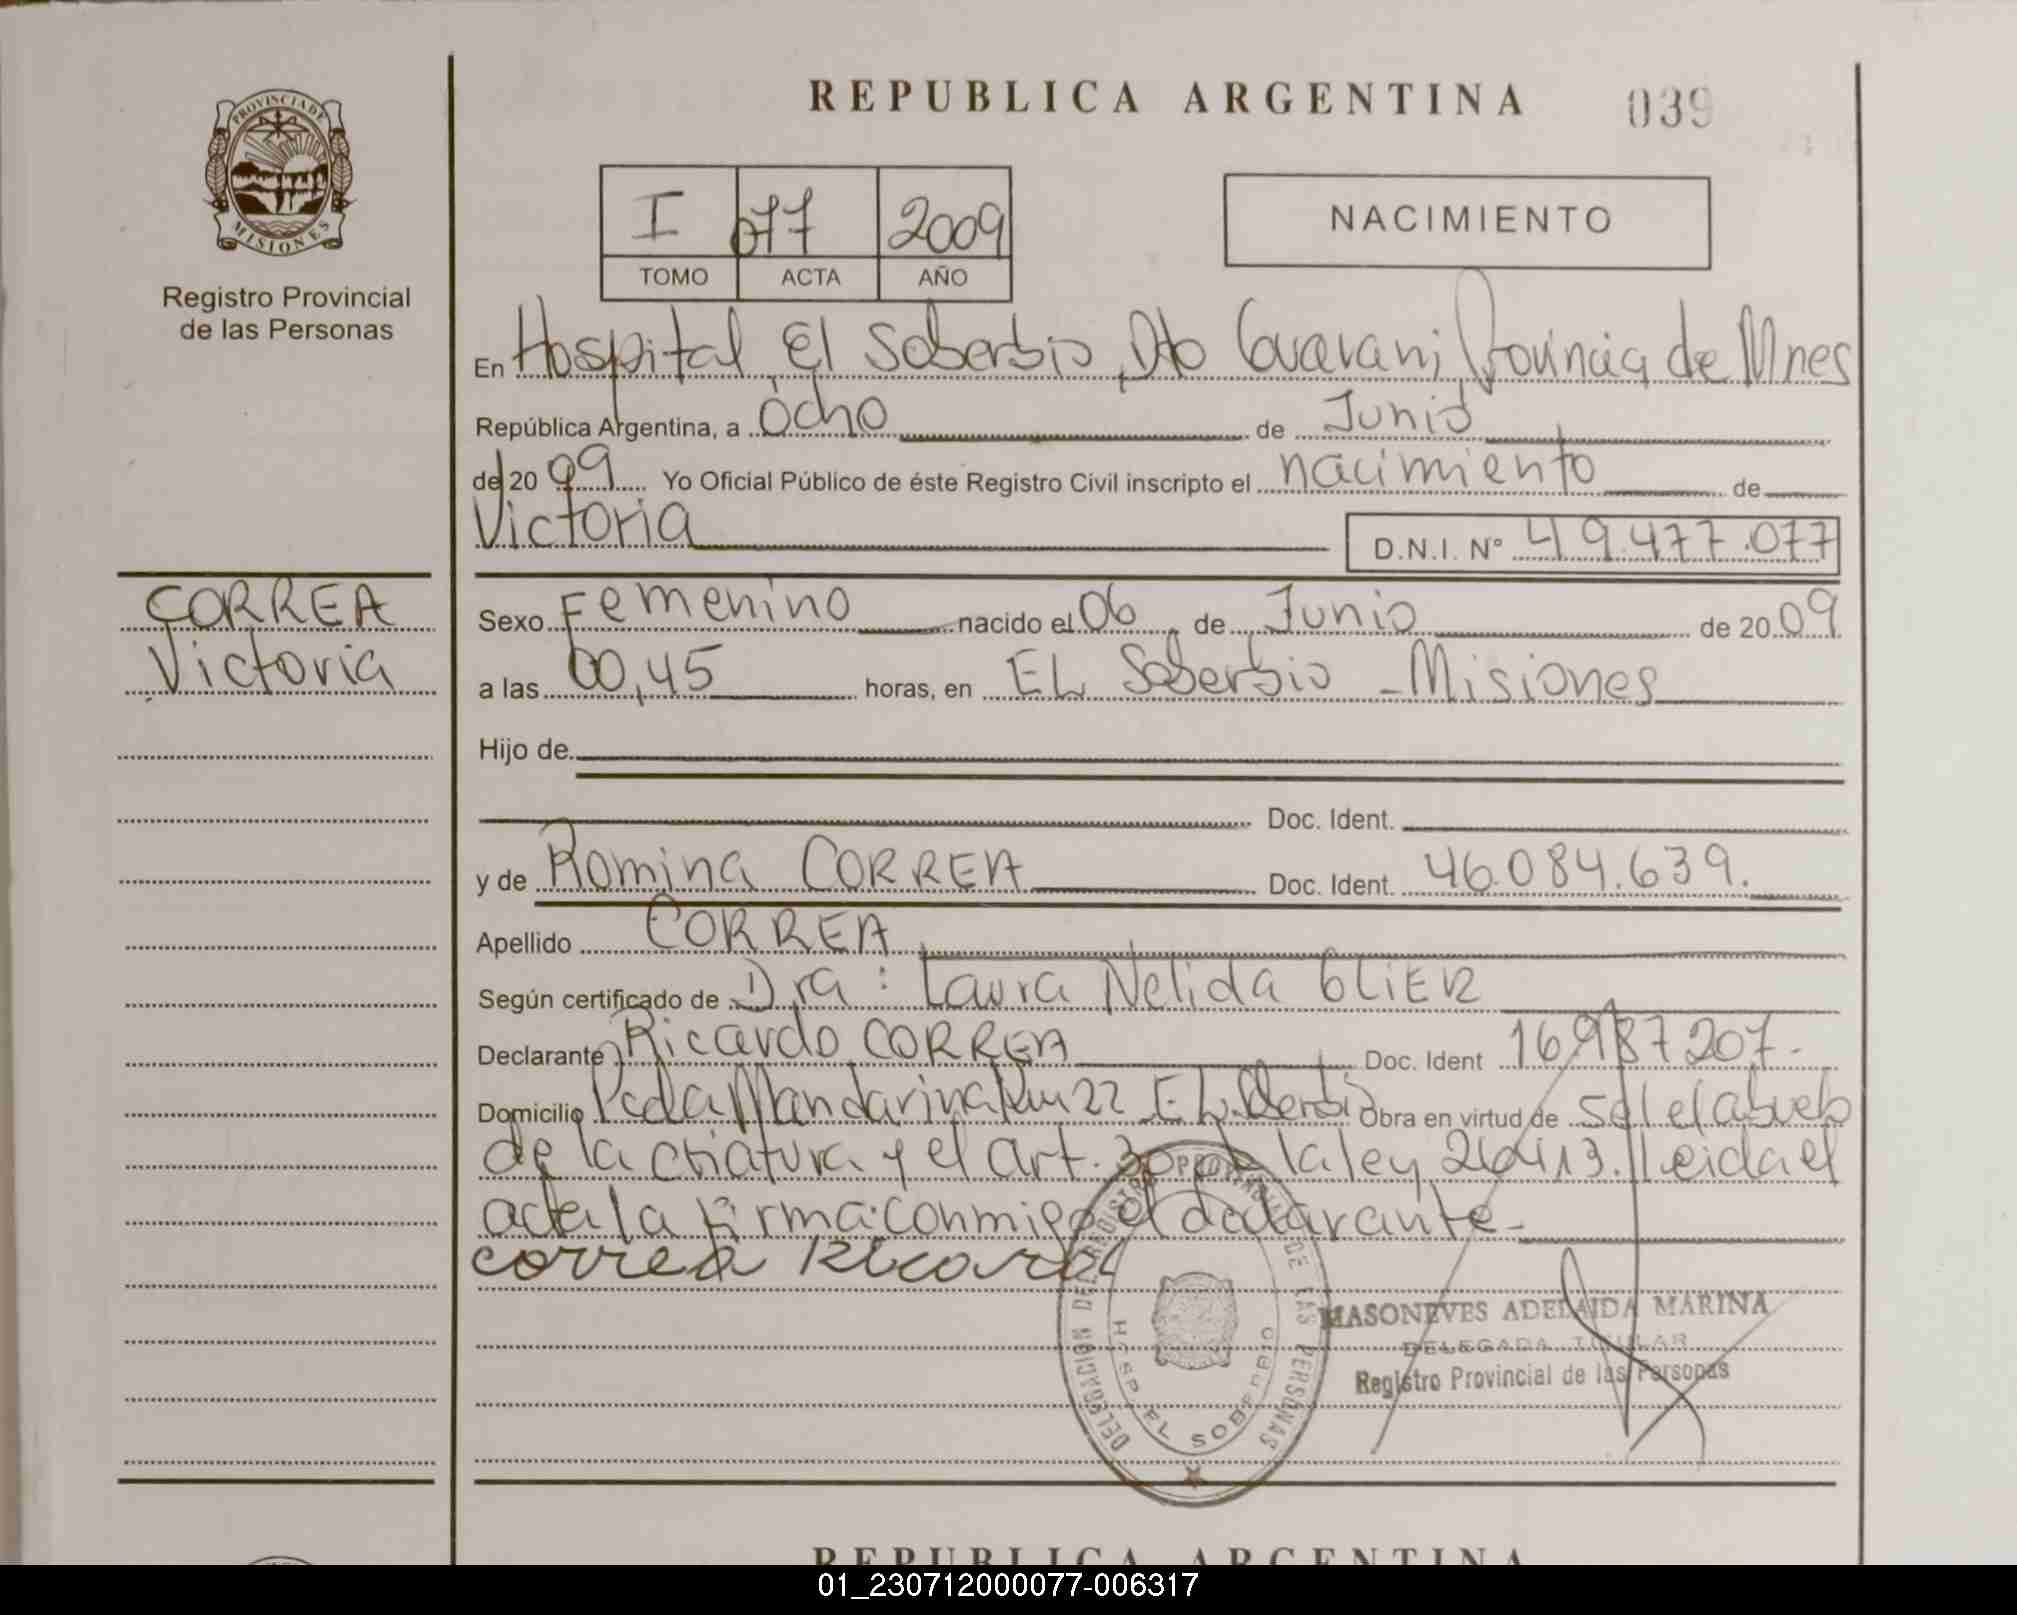 REPUBLICA ARGENTINA 039
PROVINCIA DE
MISIONES
Registro Provincial
de las Personas
I 077 2009
TOMO ACTA AÑO
NACIMIENTO
En Hospital El Soberbio, Dto Guarani Provincia de Mnes
República Argentina, a Ocho de Junio
de 20 09 Yo Oficial Público de éste Registro Civil inscripto el nacimiento de
Victoria D.N.I. Nº 49.477.077
CORREA
Victoria
Sexo Femenino nacido el 06 de Junio de 20 09
a las 00,45 horas, en EL Soberbio - Misiones
Hijo de
Doc. Ident.
y de Romina CORREA Doc. Ident. 46.084.639.
Apellido CORREA
Según certificado de Dra: Laura Nelida GLIER
Declarante Ricardo CORREA Doc. Ident 16.987.207.-
Domicilio Pcda Mandarina Km 22 EL Soberbio Obra en virtud de ser el abuelo
de la criatura y el art. 30 de la ley 26413. Leida el
acta la firma conmigo el declarante-
correa Ricardo
DELEGACION DEL REGISTRO PROVINCIAL DE LAS PERSONAS
HOSP. EL SOBERBIO
MASONEVES ADELAIDA MARINA
DELEGADA TITULAR
Registro Provincial de las Personas
REPUBLICA ARGENTINA
01_230712000077-006317